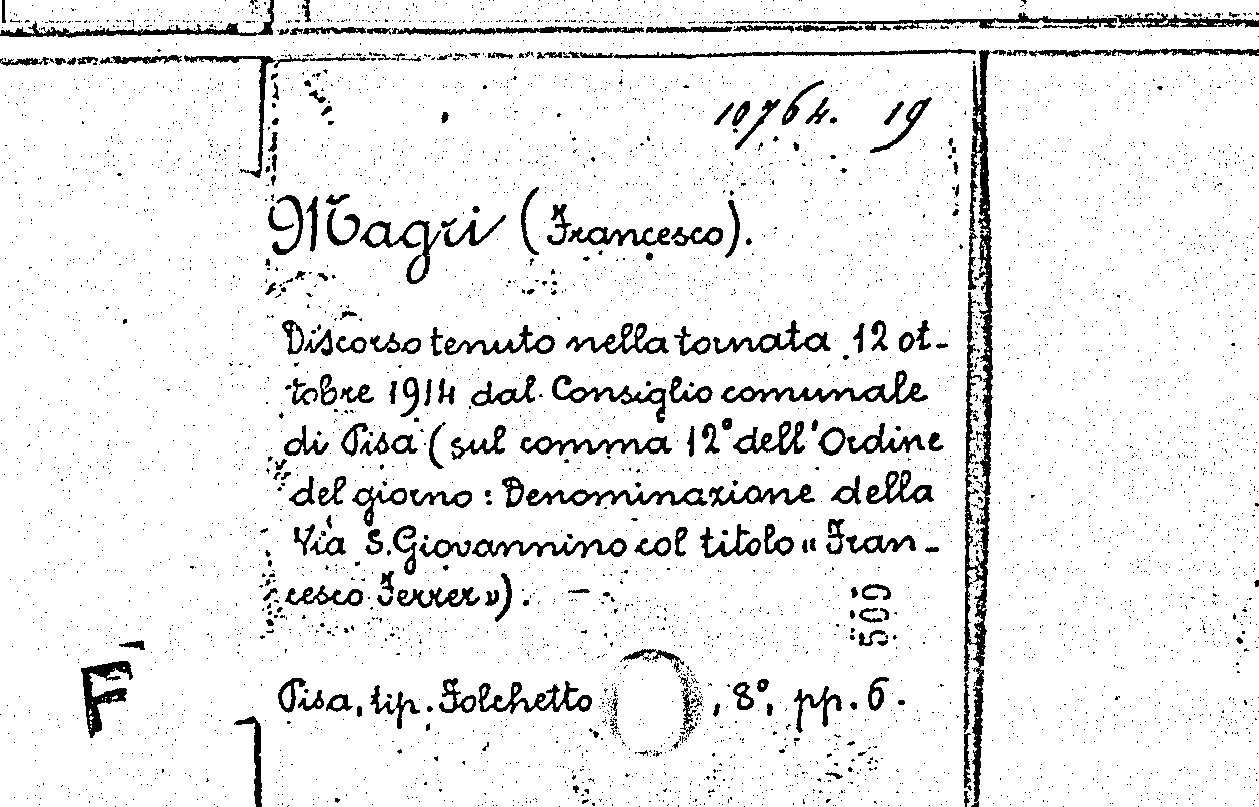 10764. 19
Magri (Francesco).
Discorso tenuto nella tornata 12 ot-
tobre 1914 dal Consiglio comunale
di Pisa (sul comma 12° dell'Ordine
del giorno: Denominazione della
Via S. Giovannino col titolo « Fran-
cesco Ferrer »). —
509
F
Pisa, tip. Folchetto , 8°, pp. 6.